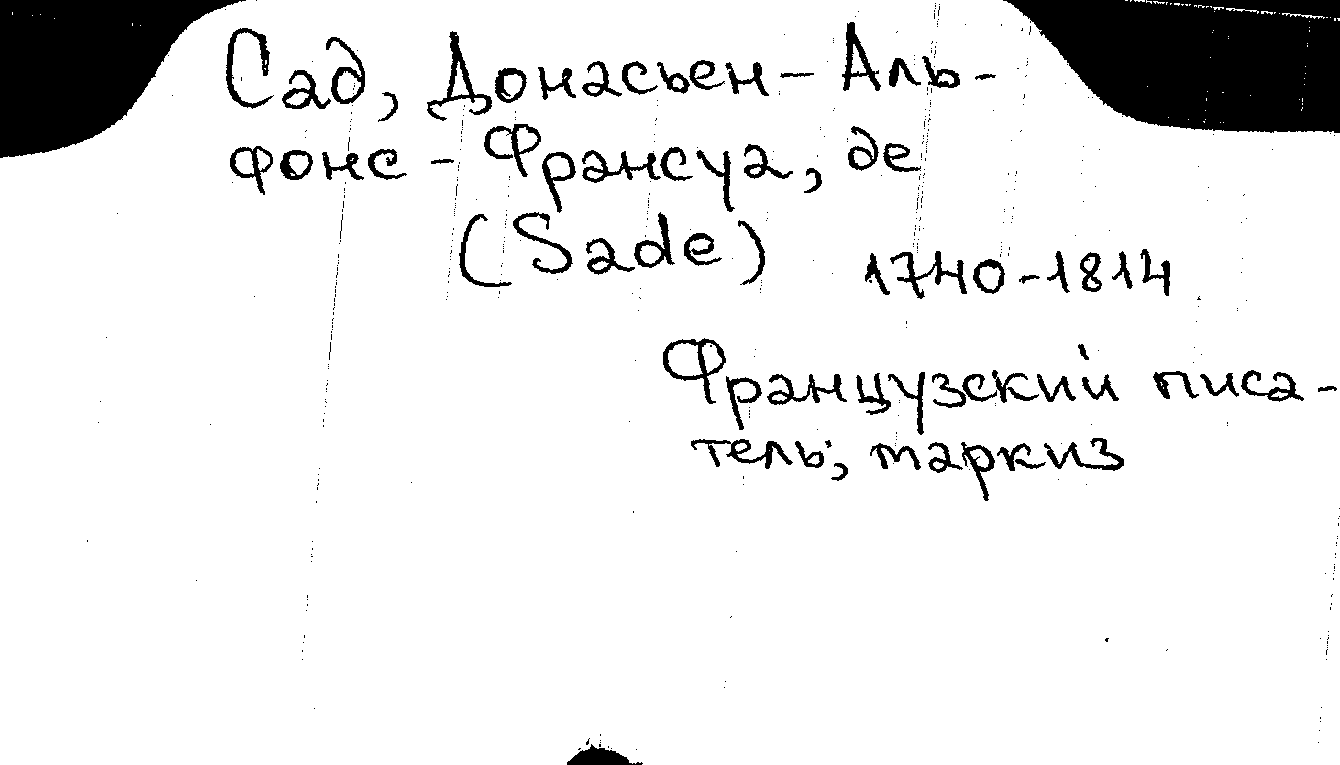 Сад, Донасьен-Аль-
фонс-Франсуа, де
(Sade) 1740-1814
Французский писа-
тель, маркиз